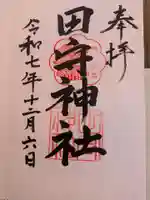 奉拝
田守神社
令和七年十二月六日